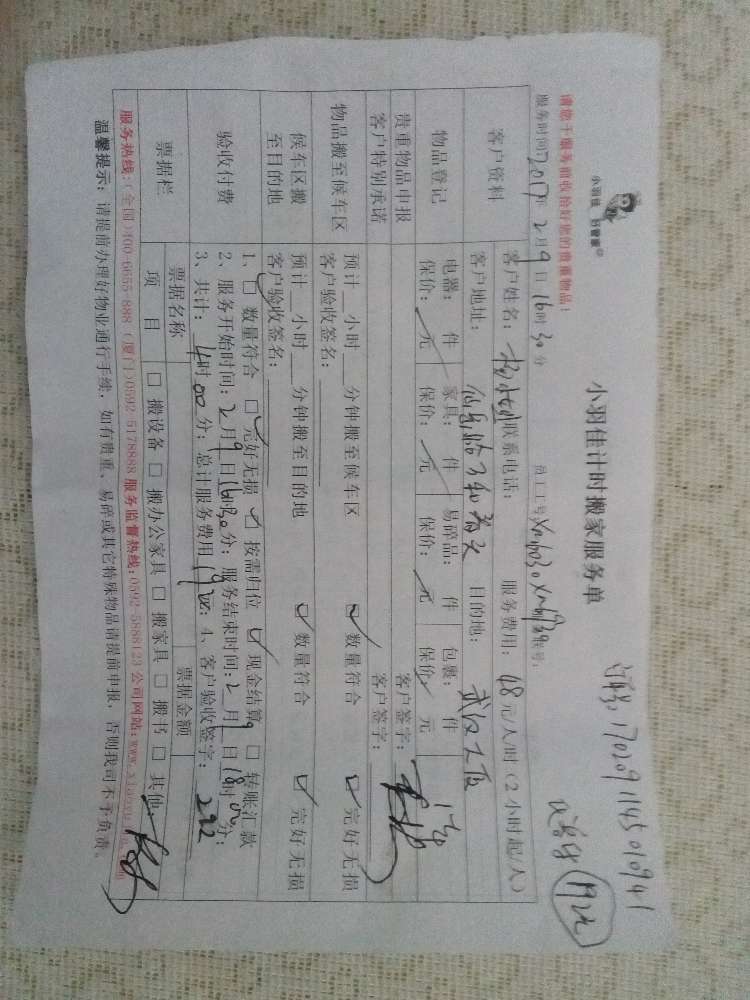 小羽佳 好管家
小羽佳计时搬家服务单
1702091145010941
192元
请您于服务前收拾好您的贵重物品!
服务时间2017年2月9日16时30分 员工工号
客户资料 客户姓名: 联系电话: 服务费用:48元/人/时(2小时起/人)
客户地址: 目的地: 武汉大厦
物品登记 电器: 件 家具: 件 易碎品: 件 包裹: 件
保价: 元 保价: 元 保价: 元 保价: 元
贵重物品申报 客户签字:
客户特别承诺 客户签字:
物品搬至候车区 预计 小时 分钟搬至候车区 ☑ 数量符合 ☑ 完好无损
客户验收签名:
候车区搬至目的地 预计 小时 分钟搬至目的地 ☑ 数量符合 ☑ 完好无损
客户验收签名:
验收付费 1、□ 数量符合 ☑ 完好无损 ☑ 按需归位 ☑ 现金结算 □ 转账汇款
2、服务开始时间:2月9日16时30分;服务结束时间:2月9日18时00分;
3、共计:4时00分;总计服务费用192元;4、客户验收签字:
票据栏 票据名称 票据金额
项目 □ 搬设备 □ 搬办公家具 □ 搬家具 □ 搬书 □ 其他:
服务热线:(全国)400-6655-888 (厦门)0592-5178888 服务监督热线:0592-5888123 公司网站:
温馨提示:请提前办理好物业通行手续,如有贵重、易碎或其它特殊物品请提前申报,否则我司不予负责。